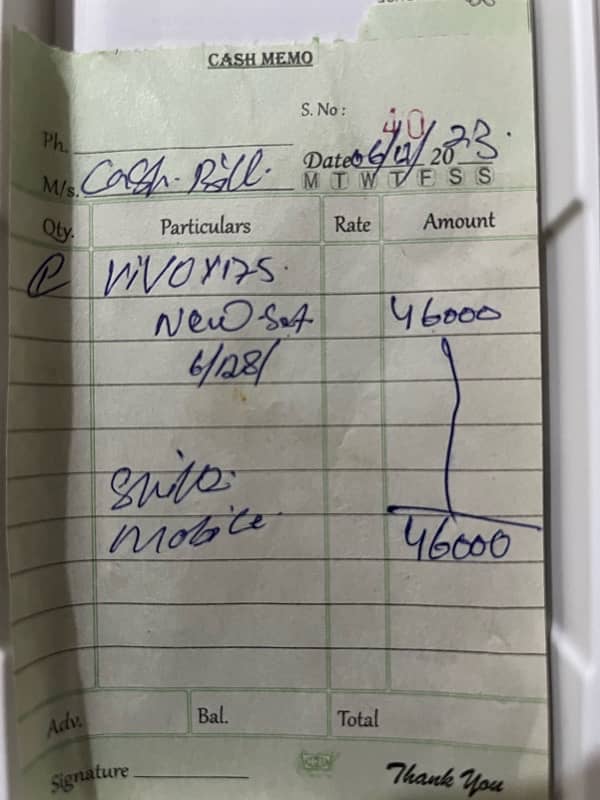 CASH MEMO
S. No : 40
Ph.
M/s. Cash Bill. Date 06/12/ 20 23.
M T W T F S S
Qty. Particulars Rate Amount
ViVO Y17S.
New Set 46000
6/128/
Mobile 46000
Adv. Bal. Total
Signature
Thank You